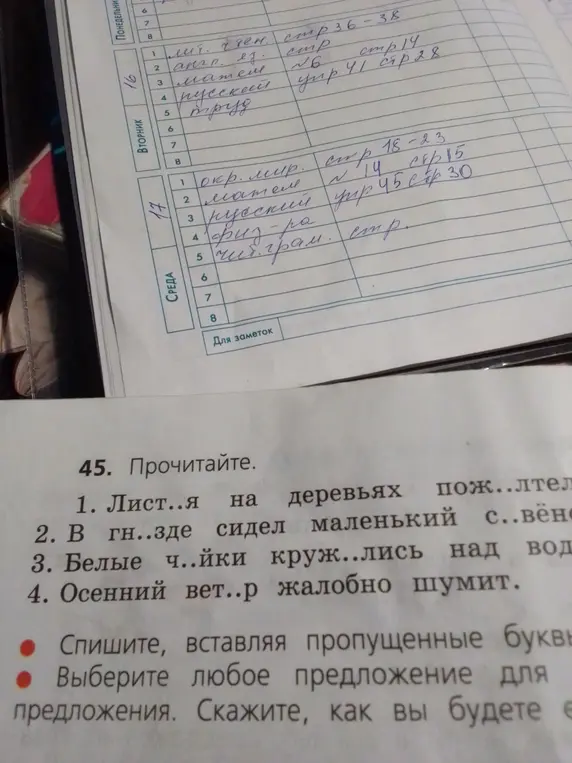 Понедельник
6
7
8
16
Вторник
1 лит. чтен. стр 36-38
2 англ. яз. стр
3 матем №6 стр 14
4 русский упр 41 стр 28
5 труд
6
7
8
17
Среда
1 окр. мир. стр 18-23
2 матем № 14 стр 15
3 русский упр 45 стр 30
4 физ-ра
5 чит. грам. стр.
6
7
8
Для заметок
45. Прочитайте.
1. Лист..я на деревьях пож..лтел
2. В гн..зде сидел маленький с..вёно
3. Белые ч..йки круж..лись над вод
4. Осенний вет..р жалобно шумит.
• Спишите, вставляя пропущенные буквы
• Выберите любое предложение для
предложения. Скажите, как вы будете е